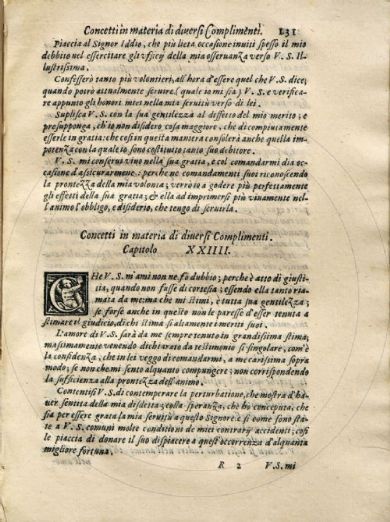 Concetti in materia di diversi Complimenti. 131
Piaccia al Signor Iddio, che più lieta occasione inuiti spesso il mio
debbito nell'essercitare gl'vfficÿ della mia osseruanza verso V. S. Il-
lustrissima.
Confesserò tanto più volontieri, all'hora d'essere quel che V. S. dice,
quando potrò attualmente seruire (quale io mi sia) V. S. e verifica-
re appunto gli honori miei nella mia seruitù verso di lei.
Suplisca V. S. con la sua gentilezza al difetto del mio merito; e
presupponga, ch'io non disidero cosa maggiore, che di compiutamente
esserle in gratia; che così in questa maniera consilerà anche quella im-
potenza con la quale io sono costituito tanto suo debitore.
V. S. mi conserui vino nella sua gratia, e col comandarmi dia oc-
casione d'assicurarmene: perche ne comandamenti suoi riconoscendo
la prontezza della mia volontà; verrò io a godere più perfettamente
gli effetti della sua gratia; & ella ad imprimersi più viuamente nel-
l'animo l'obbligo, e disiderio, che tengo di seruirla.
Concetti in materia di diversi Complimenti.
Capitolo XXIIII.
CHe V. S. m'ami non ne fò dubbio; perche è atto di giusti-
tia, quando non fusse di cortesia; essendo ella tanto ria-
mata da me: ma che mi stimi, è tutta sua gentilezza;
se forse anche in questo non le paresse d'esser tenuta a
stimare il giudicio, di chi stima sì altamente i meriti suoi.
L'amore di V. S. sarà da me sempre tenuto in grandissima stima,
massimamente vivendo dichiarato da testimonio sì singolare, com'è
la confidenza, che in lei veggo di comandarmi, a me carissima sopra
modo; se non che mi sento alquanto compungere; non corrispondendo
la sufficienza alla prontezza dell'animo.
Contentisi V. S. di contemperare la perturbatione, che mostra d'ha-
uer, sentita della mia disdetta; colla speranza, che hò conceputa, che
sia per essere grata la mia seruitù a questo Signore: e sì come sono sta-
te a V. S. comuni molte conditioni de miei contrarÿ accidenti; così
le piaccia di donare il suo dispiacere a quest'occorrenza d'alquanta
migliore fortuna.
R 2 V. S. mi